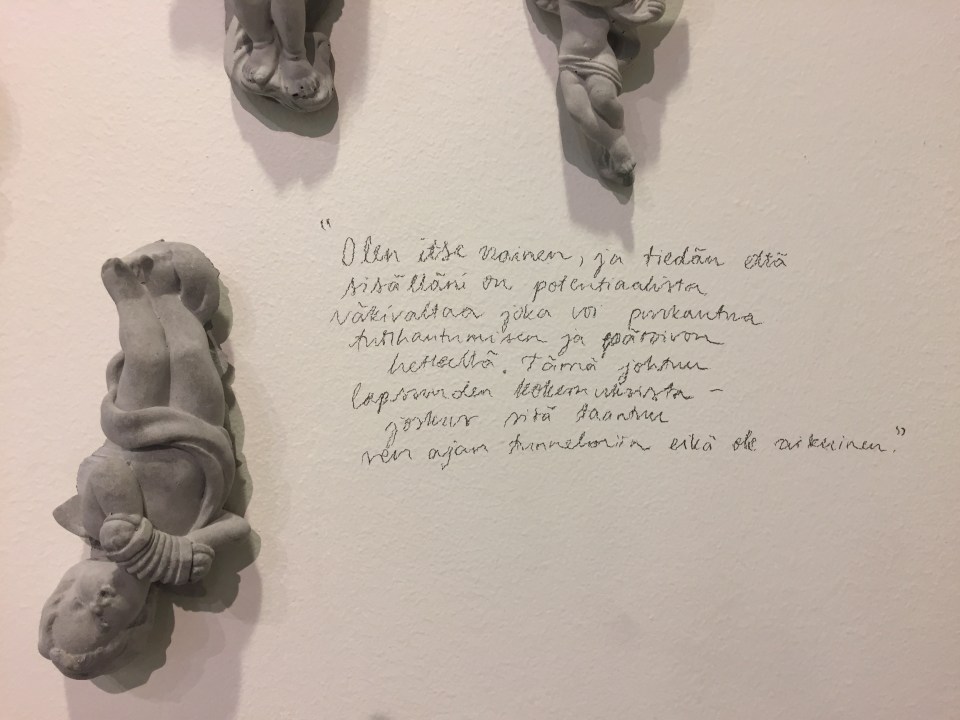 "Olen itse nainen, ja tiedän että
sisälläni on potentiaalista
väkivaltaa joka voi purkautua
turhautumisen ja
hetkellä. Tämä johtuu
lapsuuden kokemuksista –
joskus sitä taantuu
sen ajan tunneloihin eikä ole aikuinen."